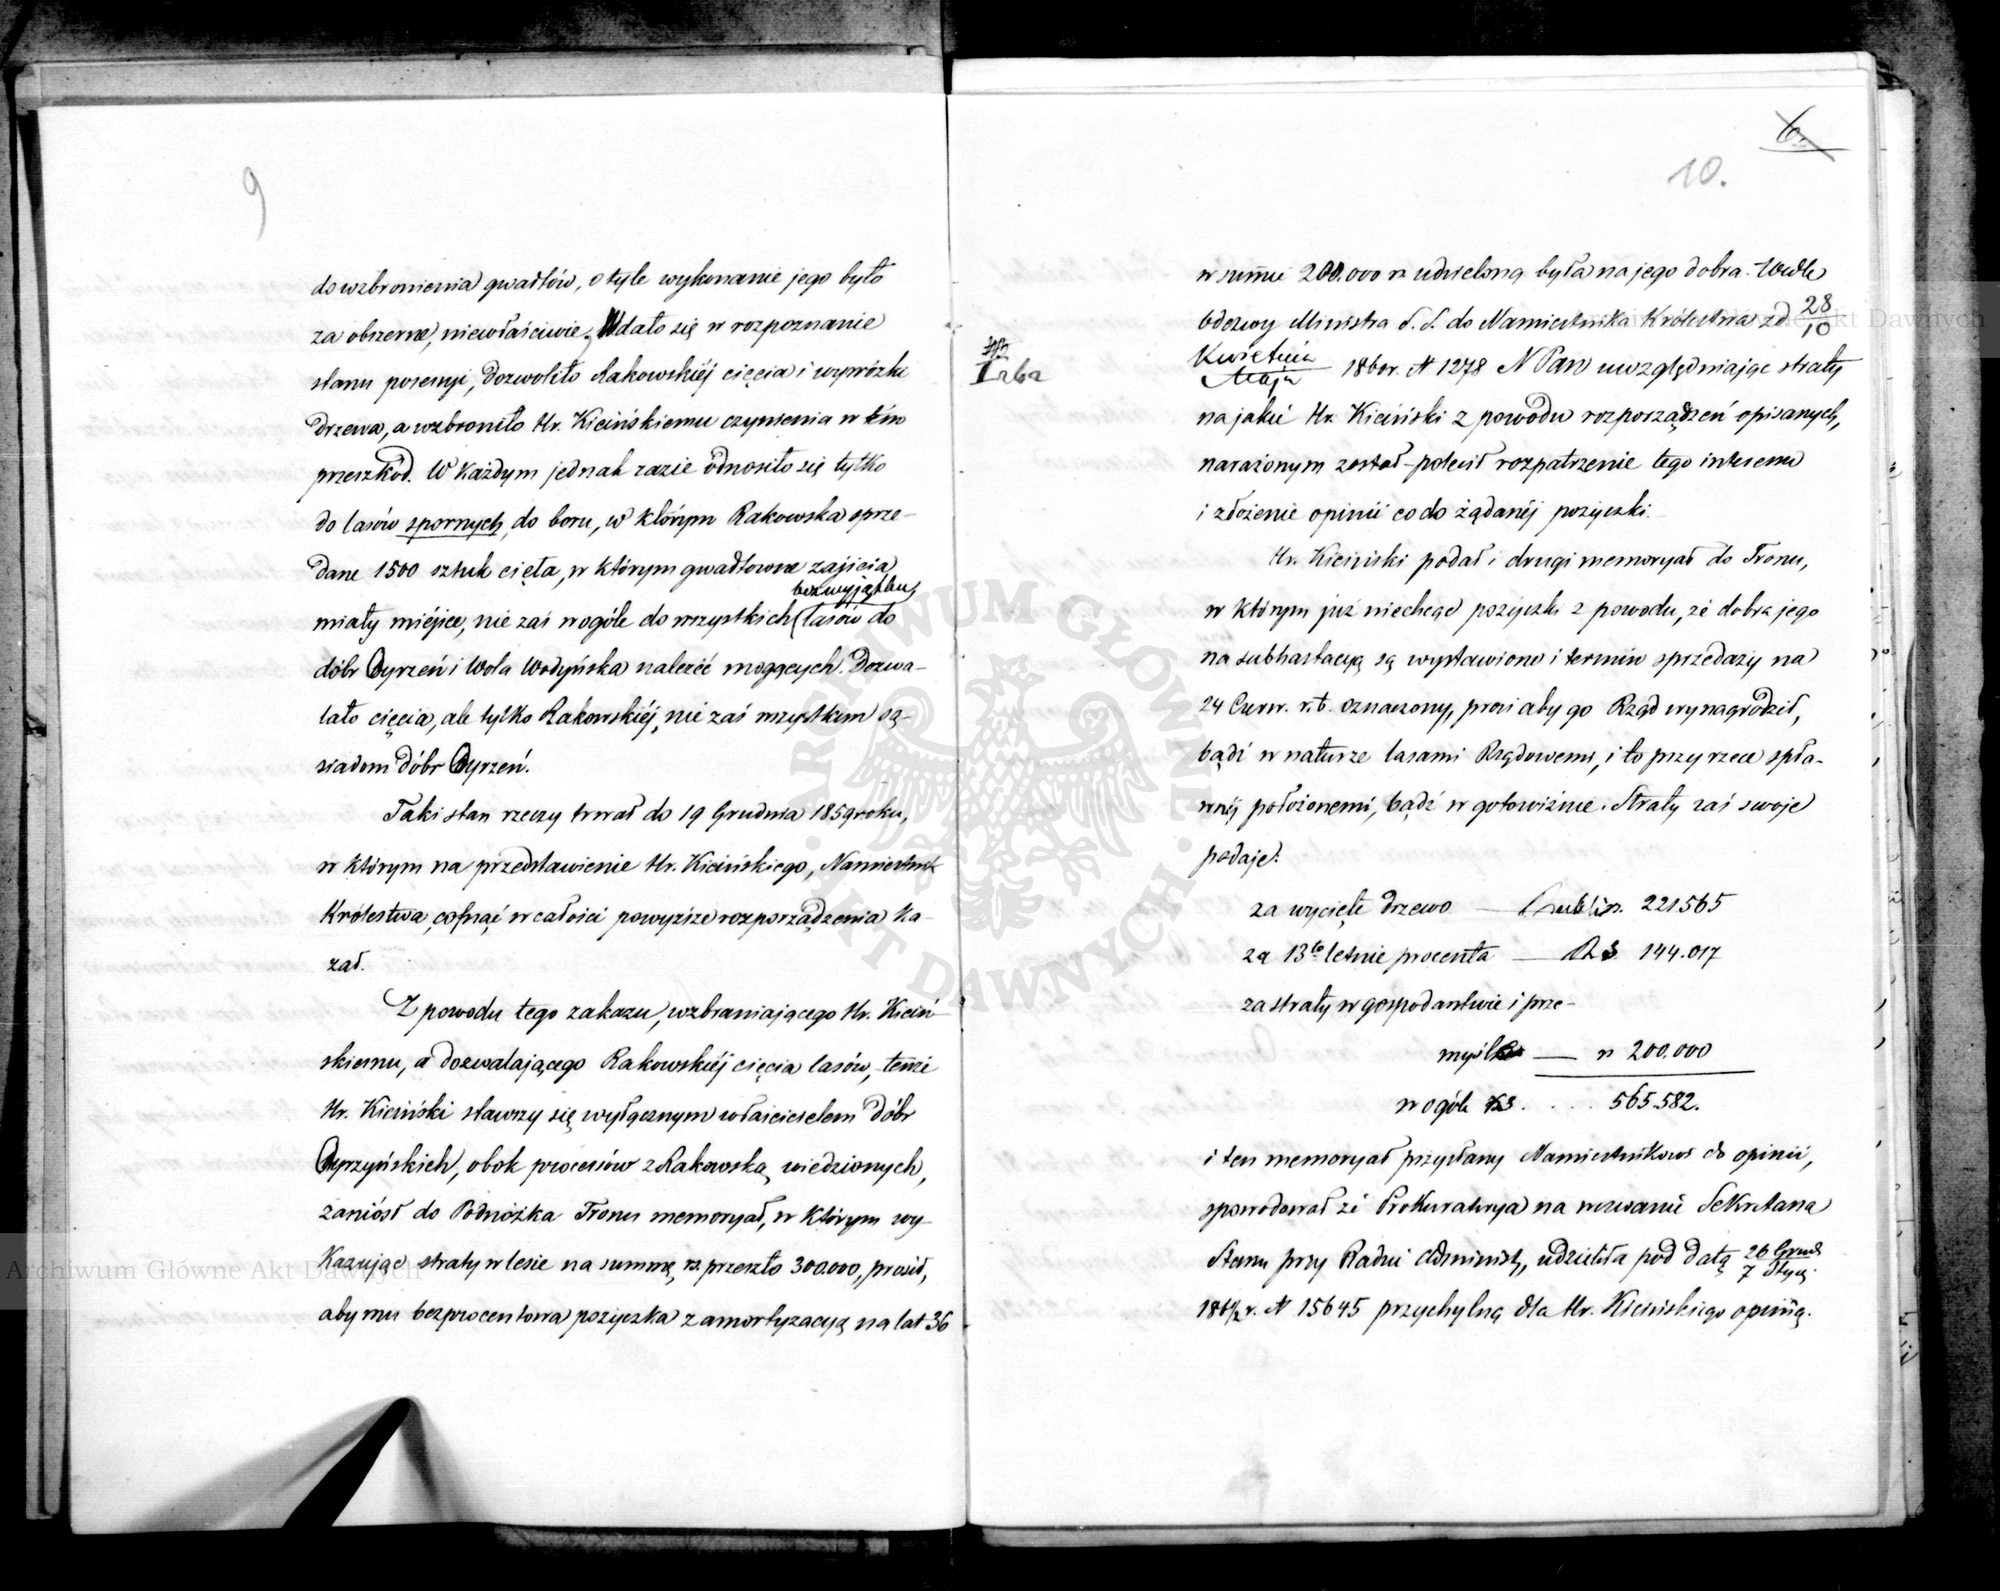 9
do wzbronienia gwałtów, o tyle wykonanie jego było
za obszerne, niewłaściwie. Wdało się w rozpoznanie
stanu posesyi, dozwoliło Rakowskiéj cięcia i wywózki
drzewa, a wzbroniło Hr. Kicińskiemu czynienia w tém
przeszkód. W każdym jednak razie odnosiło się tylko
do lasów spornych, do boru, w którym Rakowska sprze-
dane 1500 sztuk cięła, w którym gwałtowne zajścia
bez wyjątku
miały miéjsce, nie zaś w ogóle do wszystkich lasów do
dóbr Oyrzeń i Wola Wodyńska należéć mogących. Dozwa-
lało cięcia, ale tylko Rakowskiéj, nie zaś wszystkim są-
siadom dóbr Oyrzeń.
Taki stan rzeczy trwał do 19 Grudnia 1859 roku,
w którym na przedstawienie Hr. Kicińskiego, Namiestnik
Królestwa, cofnąć w całości powyższe rozporządzenia ka-
zał.
Z powodu tego zakazu, wzbraniającego Hr. Kiciń-
skiemu, a dozwalającego Rakowskiéj cięcia lasów, tenże
Hr. Kiciński stawszy się wyłącznym właścicielem dóbr
Oyrzyńskich, obok processów z Rakowską wiedzionych,
zaniósł do Podnóżka Tronu memoryał, w którym wy-
kazując straty w lesie na summę rs. przeszło 300.000, prosił,
aby mu bezprocentowa pożyczka z amortyzacyą na lat 36
6.
10.
w summie 200.000 rs udzieloną była na jego dobra. Wedle
Odezwy Ministra S. S. do Namiestnika Królestwa z d 28/10
Kwietnia/Maja 1860 r. N 1278 N Pan uwzględniając straty
na jakie Hr. Kiciński z powodu rozporządzeń opisanych,
narażonym został – polecił rozpatrzenie tego interesu
i złożenie opinii co do żądanéj pożyczki.
Hr. Kiciński podał i drugi memoryał do Tronu,
w którym już niechcąc pożyczki z powodu, że dobra jego
na subhastacyą są wystawione i termin sprzedaży na
24 Czerw. r. b. oznaczony, prosi aby go Rząd wynagrodził,
bądź w naturze lasami Rządowemi, i to przy rzece spła-
wnéj położonemi, bądź w gotowiźnie. Straty zaś swoje
podaje:
za wycięte drzewo — rubli sr. 221.565
za 13to letnie procenta — RS 144.017
za straty w gospodarstwie i prze-
myśle — rs 200.000
w ogóle RS. . . . 565.582.
i ten memoryał przysłany Namiestnikowi do opinii,
spowodował że Prokuratorya na wezwanie Sekretarza
Stanu przy Radzie Administ, udzieliła pod datą 26 Grud/7 Stycz.
1861/2 r. N 15645 przychylną dla Hr. Kicińskiego opinią.